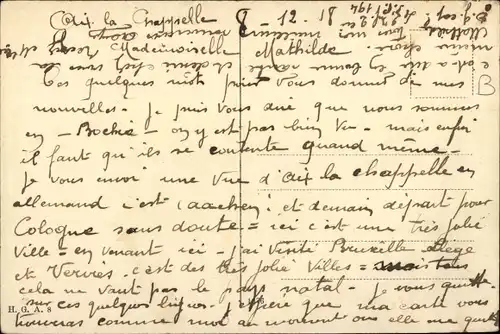 Aix la Chapelle 8 - 12 - 18
Mademoiselle Mathilde
Ces quelques mots pour vous donner de mes
nouvelles - je puis vous dire que nous sommes
en - Bochie - on y est pas bien vu - mais enfin
il faut qu'ils se contente quand même -
je vous envoi une vue d'aix la chappelle en
allemand c'est (aachen). et demain départ pour
Cologne sans doute = ici c'est une très jolie
ville = en venant ici - j'ai visité Bruxelle Liège
et Verviers. c'est des très jolie villes = mais tous
cela ne vaut pas le pays natal - je vous quitte
sur ces quelques lignes. j'espère que ma carte vous
trouveras comme moi au moment où elle me quitte
B
H. G. A. 8